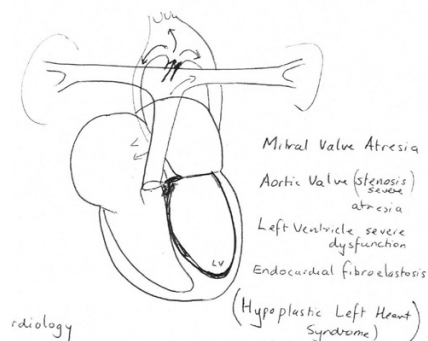 Mitral Valve Atresia
Aortic Valve (stenosis)
severe
atresia
Left Ventricle severe
dysfunction
Endocardial fibroelastosis
(Hypoplastic Left Heart
Syndrome)
LV
rdiology